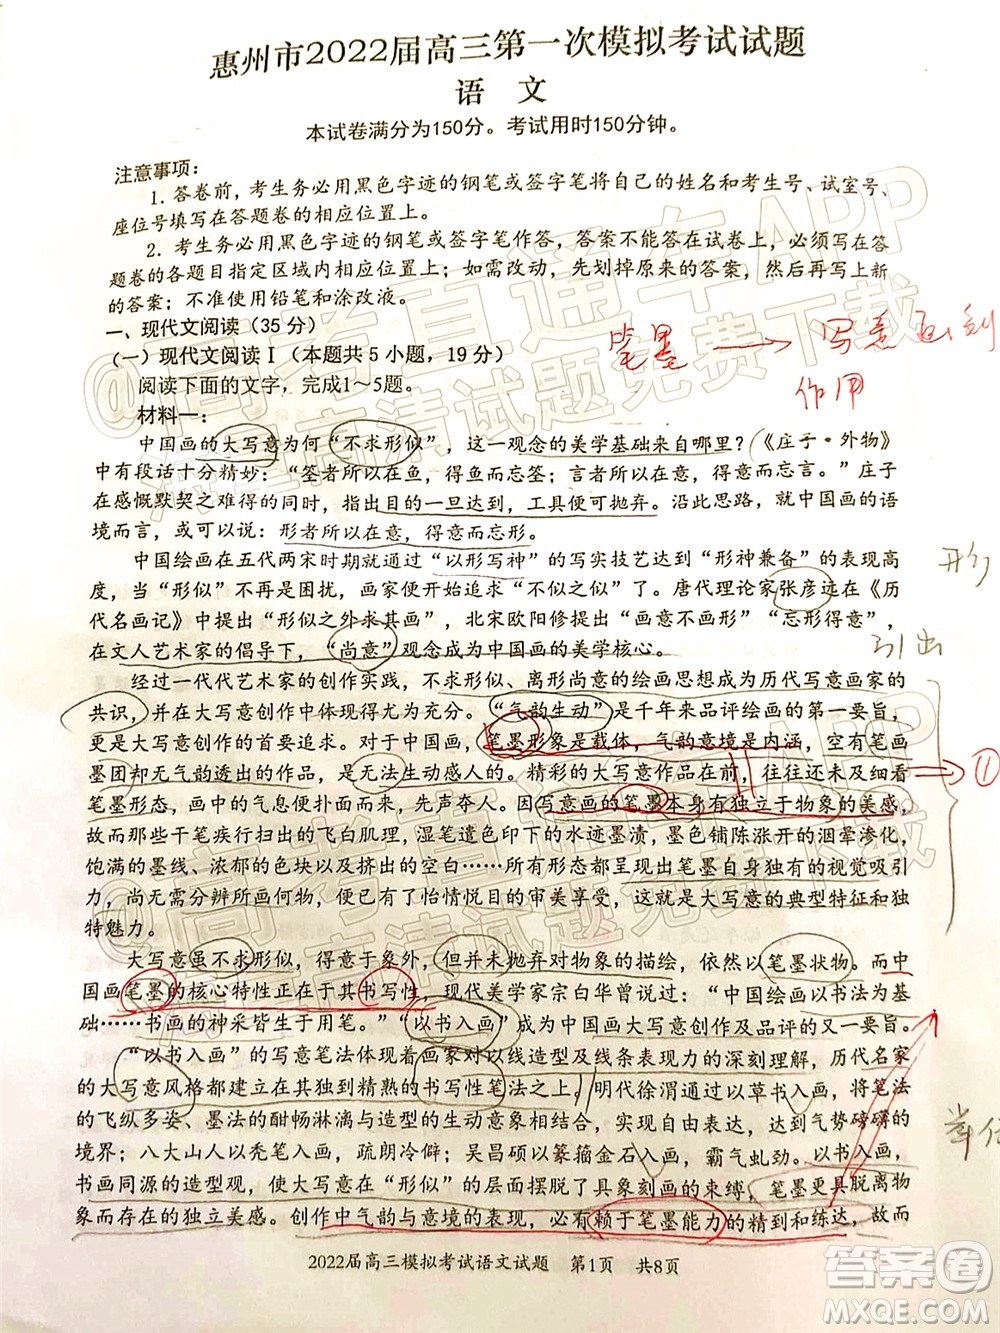 惠州市2022届高三第一次模拟考试试题
语 文
本试卷满分为150分。考试用时150分钟。
注意事项：
1. 答卷前，考生务必用黑色字迹的钢笔或签字笔将自己的姓名和考生号、试室号、
座位号填写在答题卷的相应位置上。
2. 考生务必用黑色字迹的钢笔或签字笔作答，答案不能答在试卷上，必须写在答
题卷的各题目指定区域内相应位置上；如需改动，先划掉原来的答案，然后再写上新
的答案；不准使用铅笔和涂改液。
一、现代文阅读（35 分）
笔墨 → 写意画到
（一）现代文阅读Ⅰ（本题共 5 小题，19 分）
作用
阅读下面的文字，完成1～5题。
材料一：
中国画的大写意为何“不求形似”，这一观念的美学基础来自哪里？《庄子·外物》
中有段话十分精妙：“筌者所以在鱼，得鱼而忘筌；言者所以在意，得意而忘言。”庄子
在感慨默契之难得的同时，指出目的一旦达到，工具便可抛弃。沿此思路，就中国画的语
境而言，或可以说：形者所以在意，得意而忘形。
中国绘画在五代两宋时期就通过“以形写神”的写实技艺达到“形神兼备”的表现高
度，当“形似”不再是困扰，画家们开始追求“不似之似”了。唐代理论家张彦远在《历
代名画记》中提出“形似之外求其画”，北宋欧阳修提出“画意不画形”“忘形得意”，
引出
在文人艺术家的倡导下，“尚意”观念成为中国画的美学核心。
经过一代代艺术家的创作实践，不求形似、离形尚意的绘画思想成为历代写意画家的
共识，并在大写意创作中体现得尤为充分。“气韵生动”是千年来品评绘画的第一要旨，
更是大写意创作的首要追求。对于中国画，笔墨形象是载体，气韵意境是内涵，空有笔画
墨团却无气韵透出的作品，是无法生动感人的。精彩的大写意作品在前，往往还未及细看
①
笔墨形态，画中的气息便扑面而来，先声夺人。因写意画的笔墨本身有独立于物象的美感，
故而那些干笔疾行扫出的飞白肌理，湿笔遗色印下的水迹墨渍，墨色铺陈涨开的洇晕渗化，
饱满的墨线、浓郁的色块以及挤出的空白……所有形态无论具象抽象都具有独特的视觉吸引
力，尚无需分辨所画何物，便已有了怡情悦目的审美享受，这就是大写意的典型特征和独
特魅力。
大写意虽不求形似，得意于象外，但并未抛弃对物象的描绘，依然以笔墨状物。而中
国画笔墨的核心特性正在于其书写性，现代美学家宗白华曾说过：“中国绘画以书法为基
础……书画的神采皆生于用笔。”“以书入画”成为中国画大写意创作及品评的又一要旨。
“以书入画”的写意笔法体现着画家对以线造型及线条表现力的深刻理解，历代名家
的大写意风格都建立在其独到精熟的书写性笔法之上，明代徐渭通过以草书入画，将笔法
的飞纵多姿、墨法的酣畅淋漓与造型的生动意象相结合，实现自由表达，达到气势磅礴的
笔墨境界；八大山人以秃笔入画，疏朗冷寂；吴昌硕以篆籀金石入画，霸气虬劲。以书入画，
书画同源的造型观，使大写意在“形似”的层面摆脱了具象刻画的束缚，笔墨更具脱离物
象而存在的独立美感。创作中气韵与意境的表现，必有赖于笔墨能力的精到和练达，故而
2022届高三模拟考试语文试题 第1页 共8页
@高考直通车APP
高清试题免费下载
@高考直通车APP
高清试题免费下载
答案圈
MXQE.COM